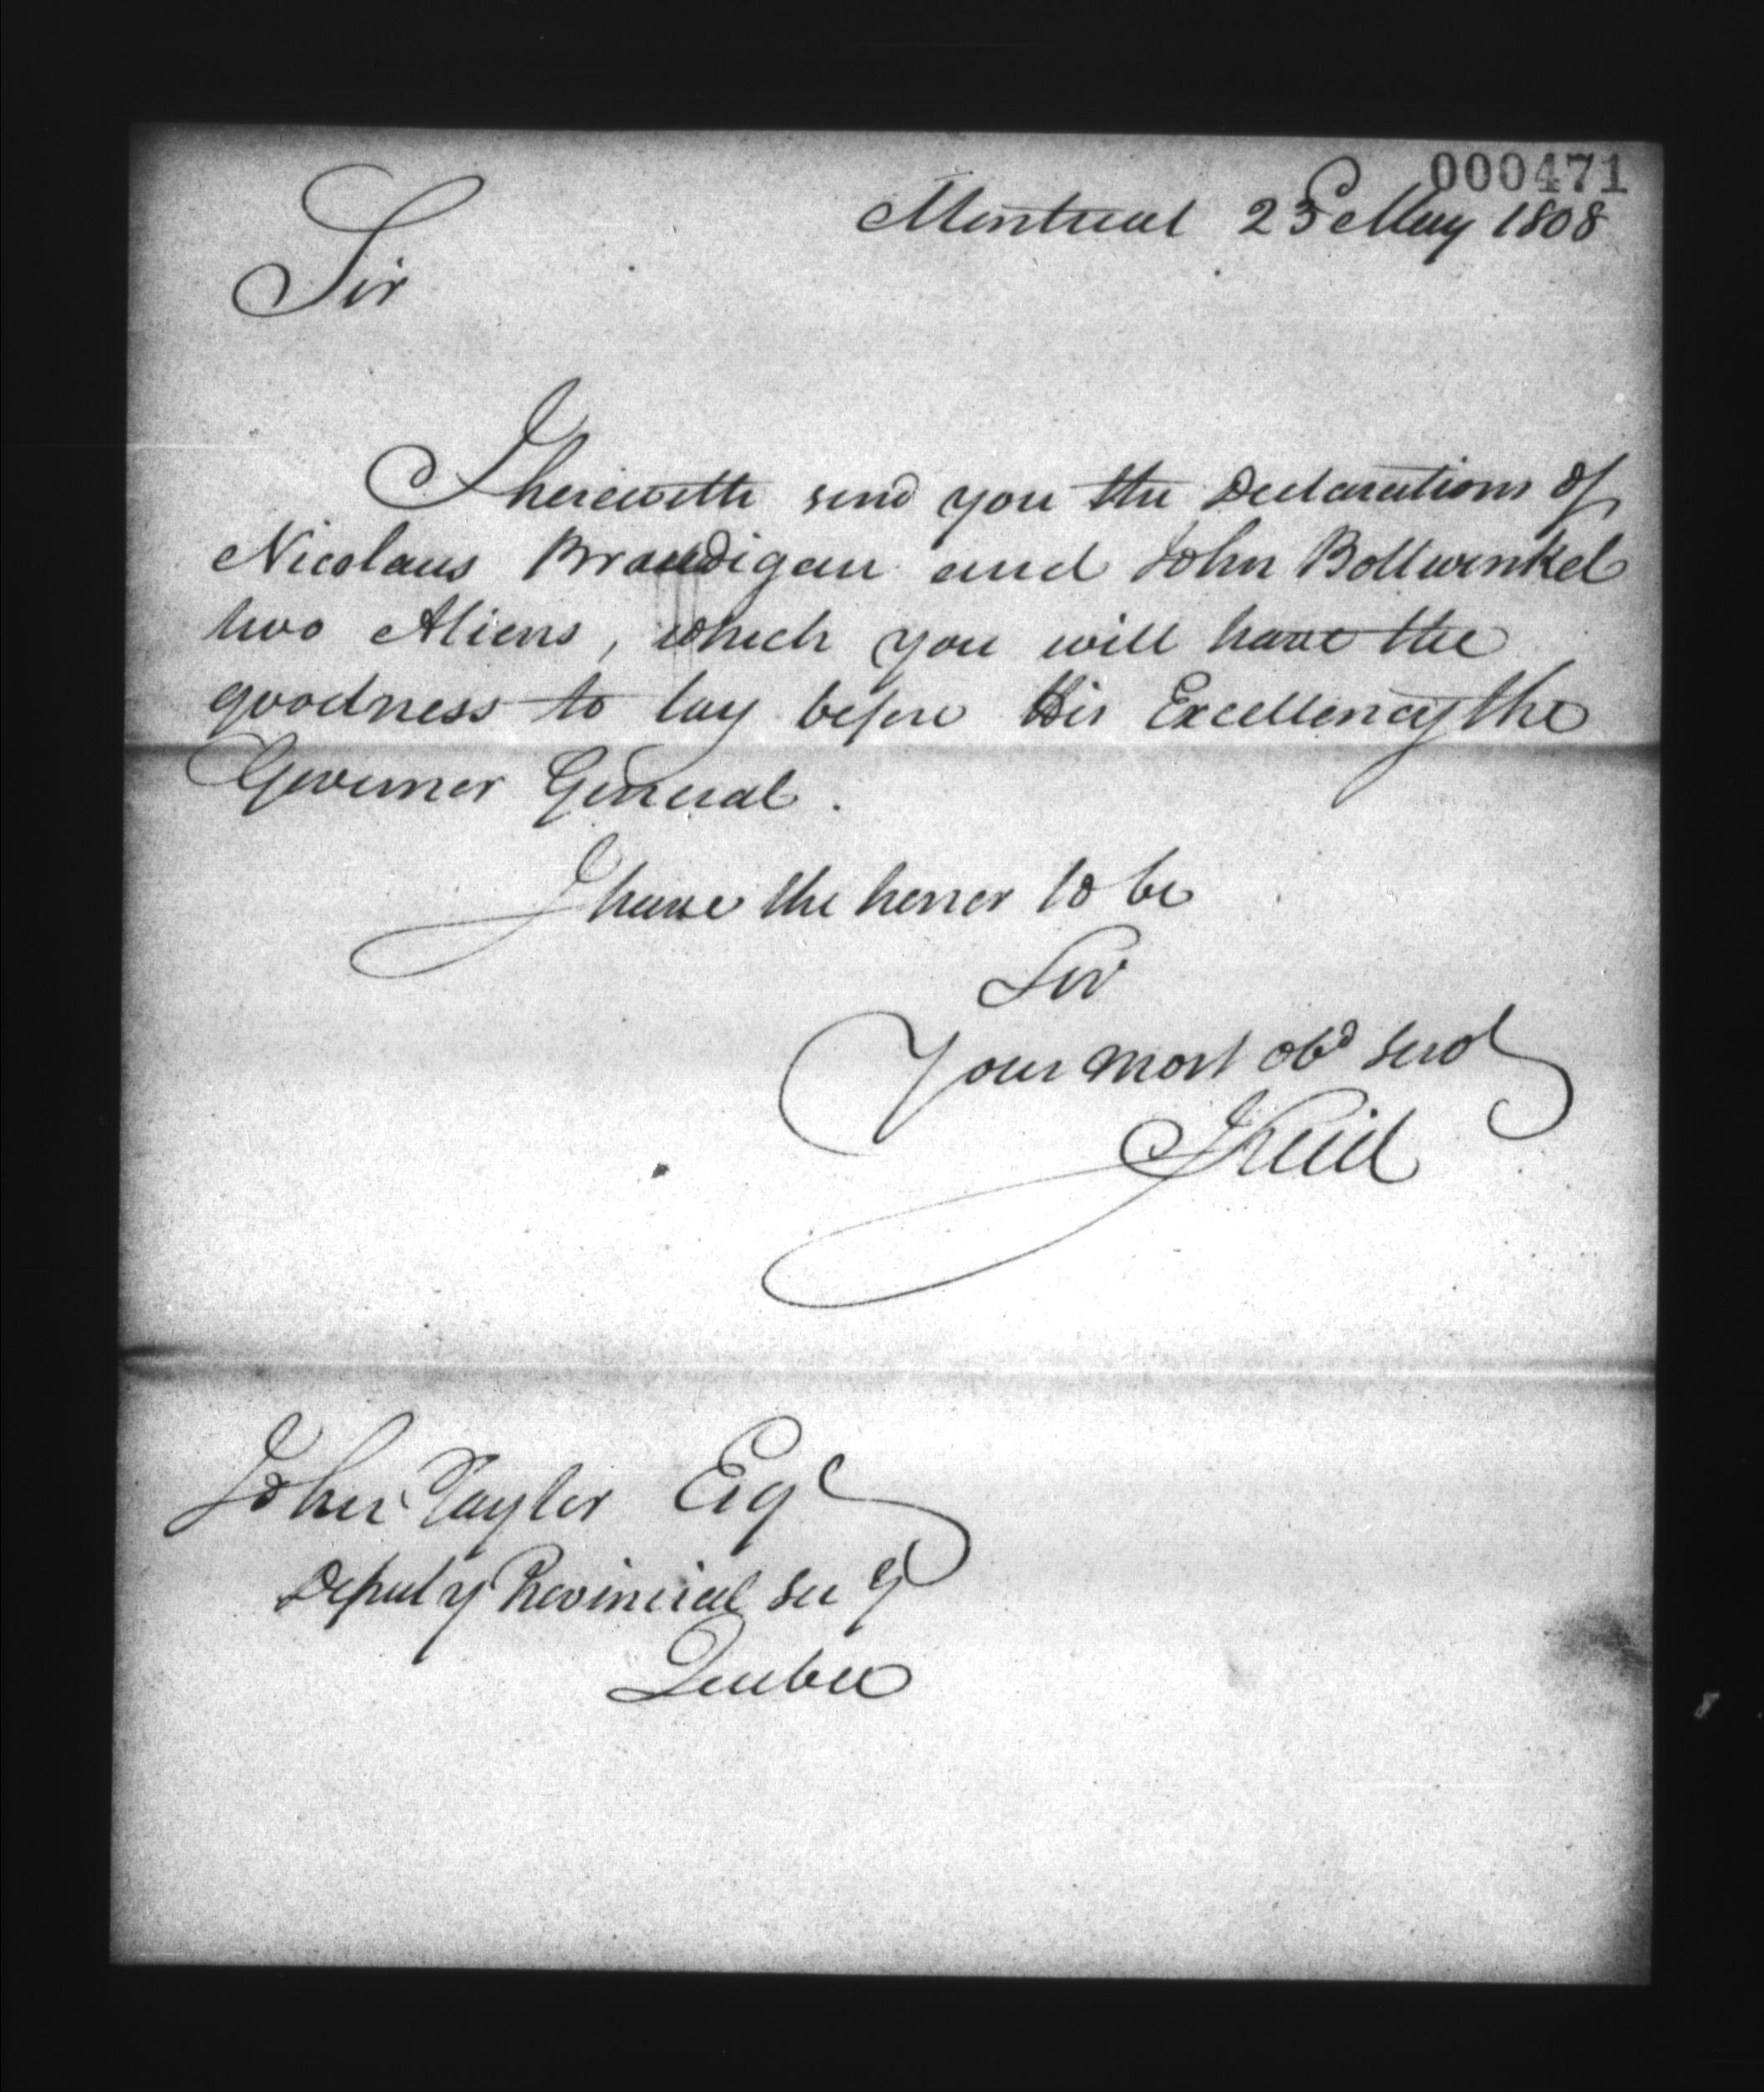 000471
Montreal 23 May 1808
Sir
I herewith send you the Declarations of
Nicolaus Brandigan and John Bollwinkel
two Aliens, which you will have the
goodness to lay before His Excellency the
Governor General.
I have the honor to be
Sir
Your most obd servt
J Reid
John Taylor Esqr
Deputy Provincial Secy
Quebec